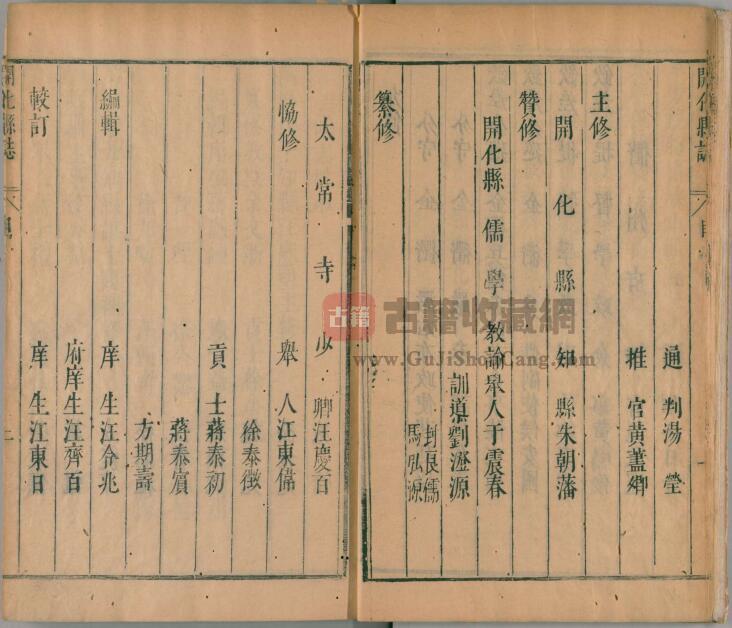 開化縣誌
通判湯瑩
推官黃藎卿
主修
開化縣知縣朱朝藩
贊修
開化縣儒學教諭舉人于震春
訓導劉瀣源
封良儒
馬弘源
纂修
太常寺少卿汪慶百
恊修
舉人江東偉
徐泰徵
貢士蔣泰初
蔣泰賔
方期壽
編輯
庠生汪令兆
府庠生汪齊百
較訂
庠生江東日
開化縣誌
古籍
古籍收藏網
www.GuJiShouCang.com